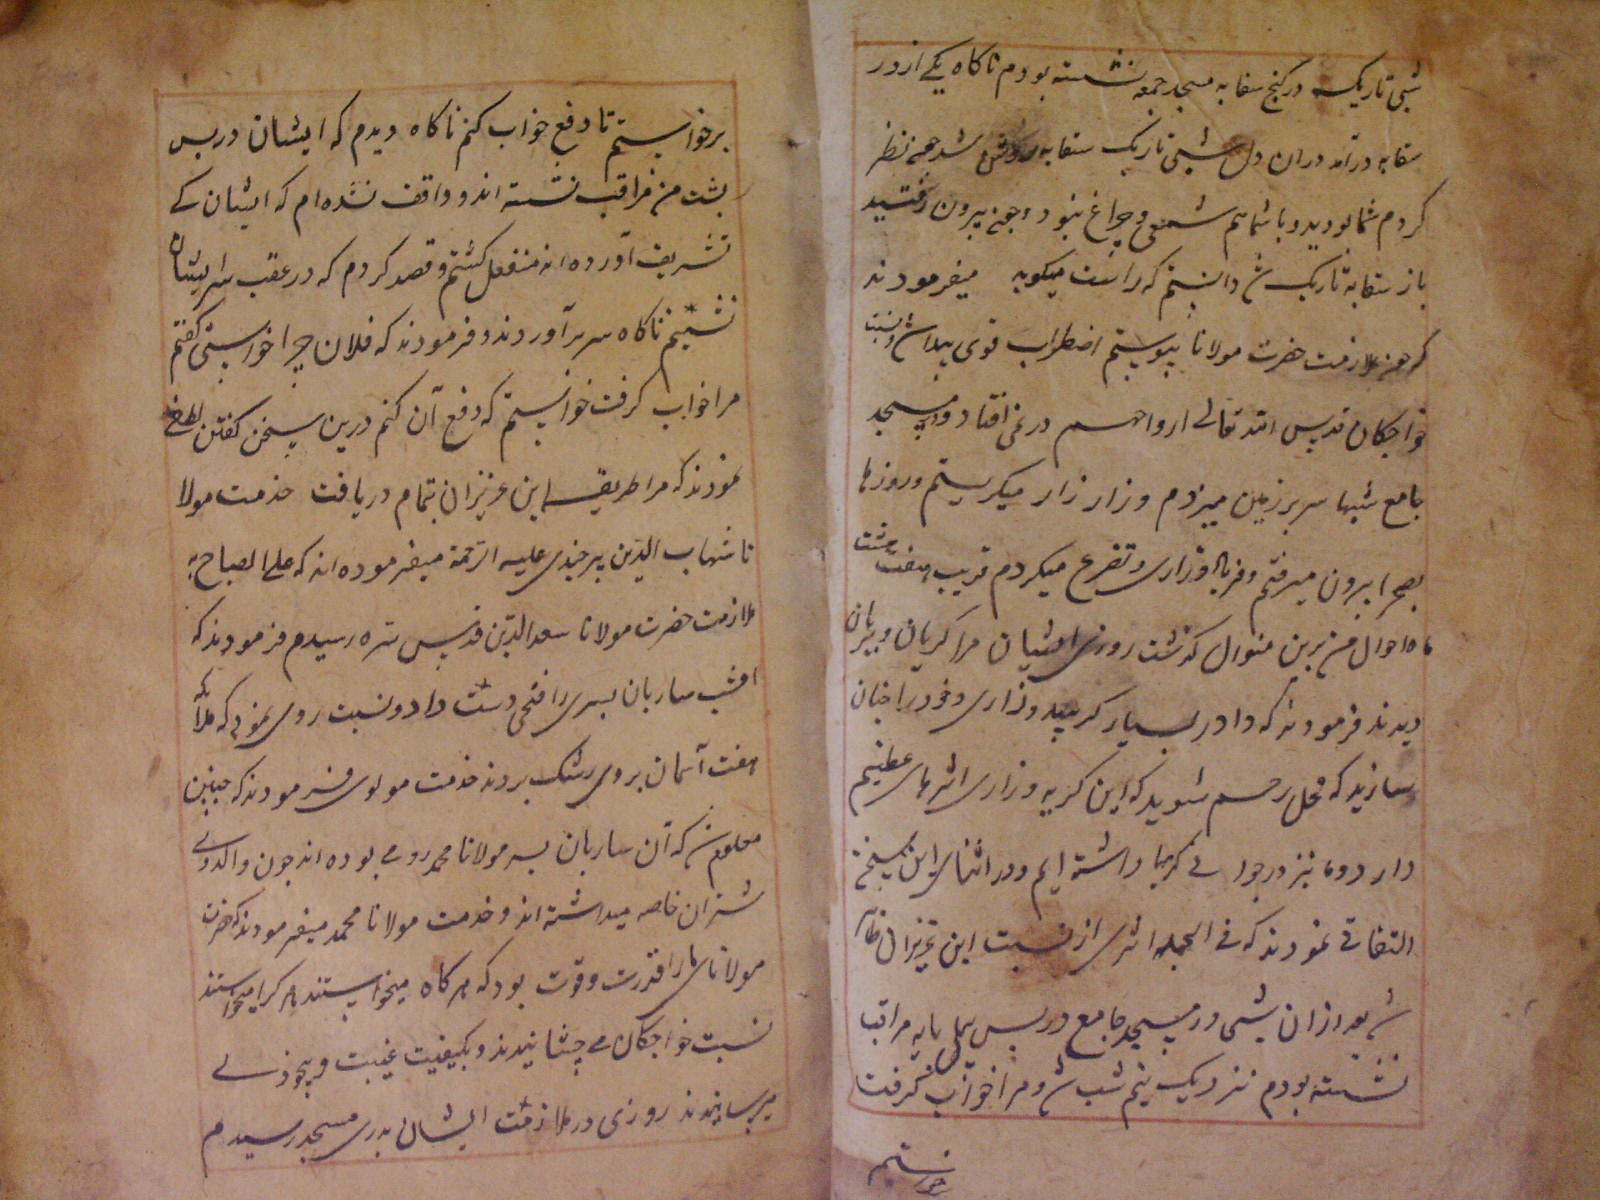 شبی تاریک در کنج سقابه مسجد جمعه نشسته بودم ناکاه یکی از در
سقابه درآمد در ان دل شبی تاریک سقابه روشن شد چون نظر
کردم شما بودید و با شما هم شمعی و چراغ نبود و چون بیرون رفتید
باز سقابه تاریک شد دانستم که راست میکوید میفرمودند
که چون بملازمت حضرت مولانا پیوستم اضطراب قوی پیدا شد و نسبت
خواجکان قدس الله تعالی ارواحهم در نمی افتاد و در مسجد
جامع شبها سر بر زمین میزدم و زار زار میکریستم و روزها
بصحرا بیرون میرفتم و فریاد و زاری و تضرع میکردم قریب هفت هشت
ماه احوال من برین منوال کذشت روزی ایشان مرا کریان و بریان
دیدند فرمودند که دادر بسیار کریید و زاری و خود را چنان
سازید که محل رحم شوید که این کریه و زاری اثرهای عظیم
دارد و ما نیز در جوانی کریها داشته ایم و در اثنای این سخن
التفاتی نمودند که فی الجمله اثری از نسبت این عزیزان ظاهر
شد بعد از ان شبی در مسجد جامع در پس پیل پایه مراقب
نشسته بودم نزدیک نیم شب شد و مرا خواب کرفت
برخواستم
برخواستم تا دفع خواب کنم ناکاه دیدم که ایشان در پس
پشت من مراقب نشسته اند و واقف نشده ام که ایشان کی
تشریف آورده اند منفعل کشتم و قصد کردم که در عقب سر ایشان
نشینم ناکاه سر برآوردند و فرمودند که فلان چرا خواستی کفتم
مرا خواب کرفت خواستم که دفع آن کنم درین سخن کفتن لطفی
نمودند که مرا طریقه این عزیزان بتمام دریافت خدمت مولا
نا شهاب الدین بیرجندی علیه الرحمة میفرموده اند که علی الصباح به
ملازمت حضرت مولانا سعدالدین قدس سره رسیدم فرمودند که
امشب ساربان پسری را فتحی دست داد و نسبت روی نمود که ملائکه
هفت آسمان بر وی رشک بردند خدمت مولوی فرمودند که چنین
معلوم شد که آن ساربان پسر مولانا محمد رومی بوده اند چون والد وی
شتران خاصه میداشته اند و خدمت مولانا محمد میفرمودند که حضرت
مولانای ما را قدرت و قوت بود که هر کاه میخواستند هر کرا میخواستند
نسبت خواجکان می چشانیدند و بکیفیت غیبت و بیخودی
میرسانیدند روزی در ملازمت ایشان بدر مسجد رسیدم